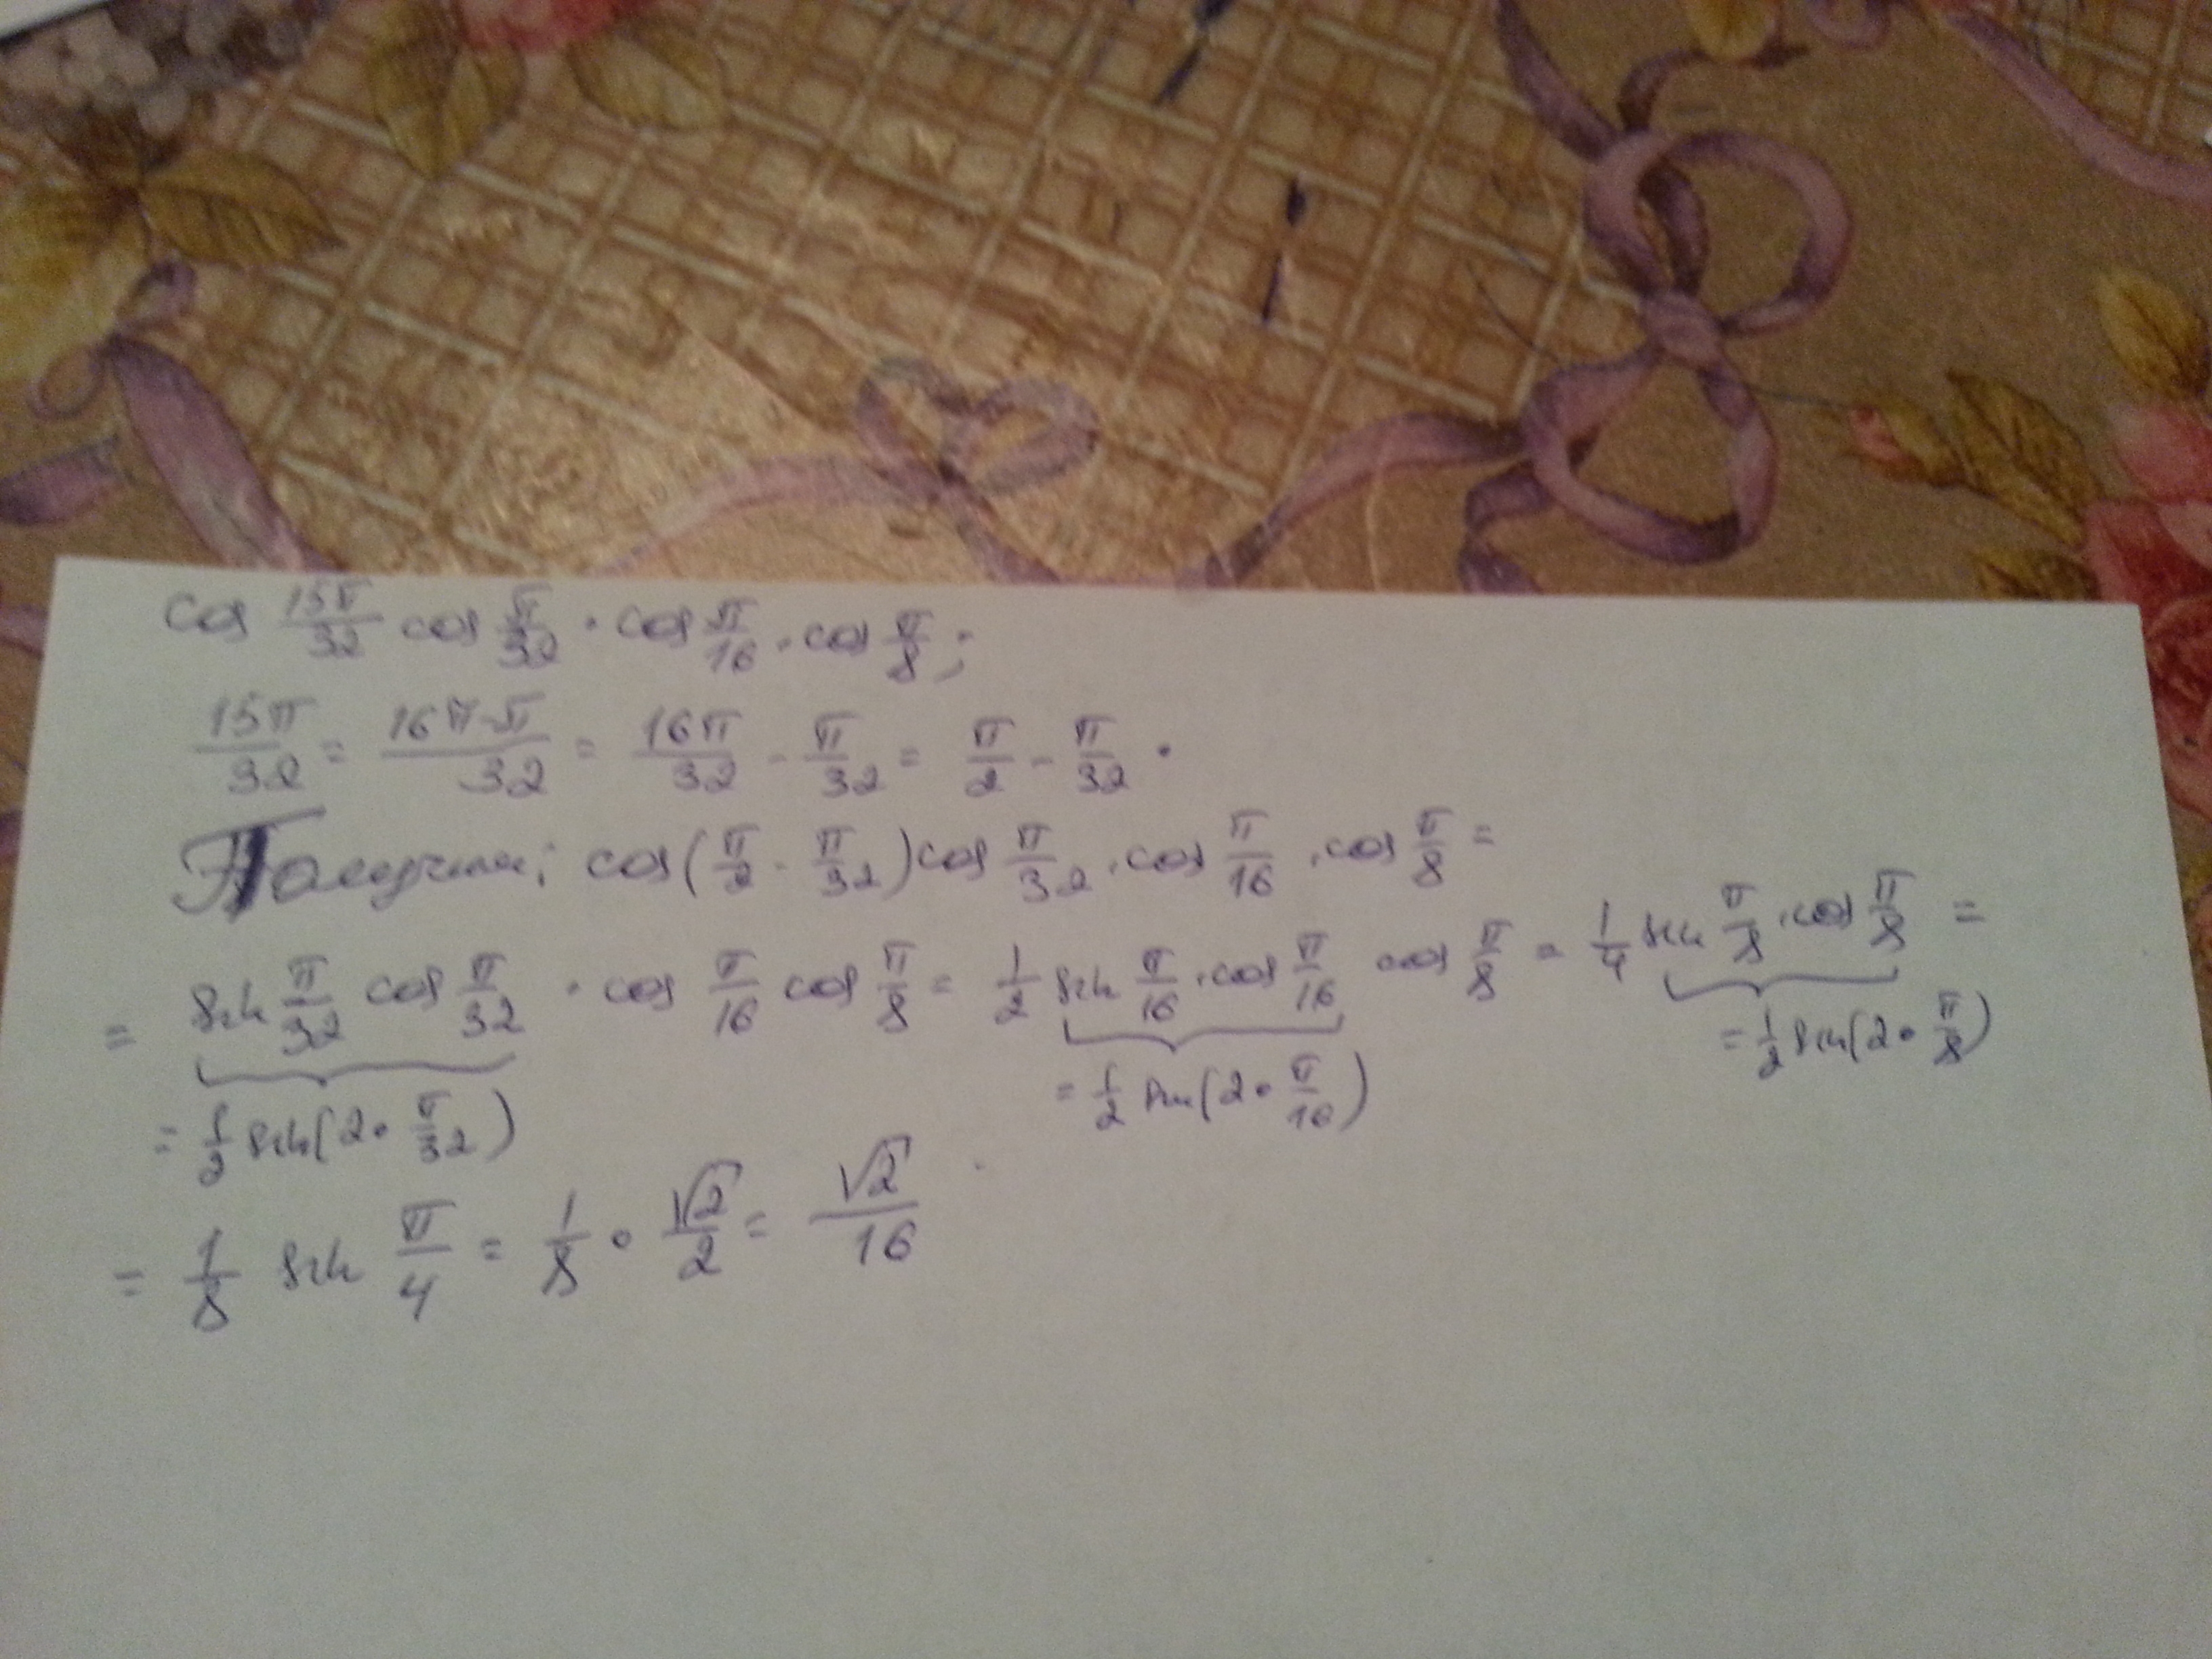 cos 15π/32 cos π/32 · cos π/16 · cos π/8 ;
15π/32 = 16π-π/32 = 16π/32 - π/32 = π/2 - π/32 .
Получим: cos(π/2 - π/32) cos π/32 · cos π/16 · cos π/8 =
= sin π/32 cos π/32 · cos π/16 cos π/8 = 1/2 sin π/16 · cos π/16 cos π/8 = 1/4 sin π/8 · cos π/8 =
= 1/2 sin(2 · π/32) = 1/2 sin(2 · π/16) = 1/2 sin(2 · π/8)
= 1/8 sin π/4 = 1/8 · √2/2 = √2/16